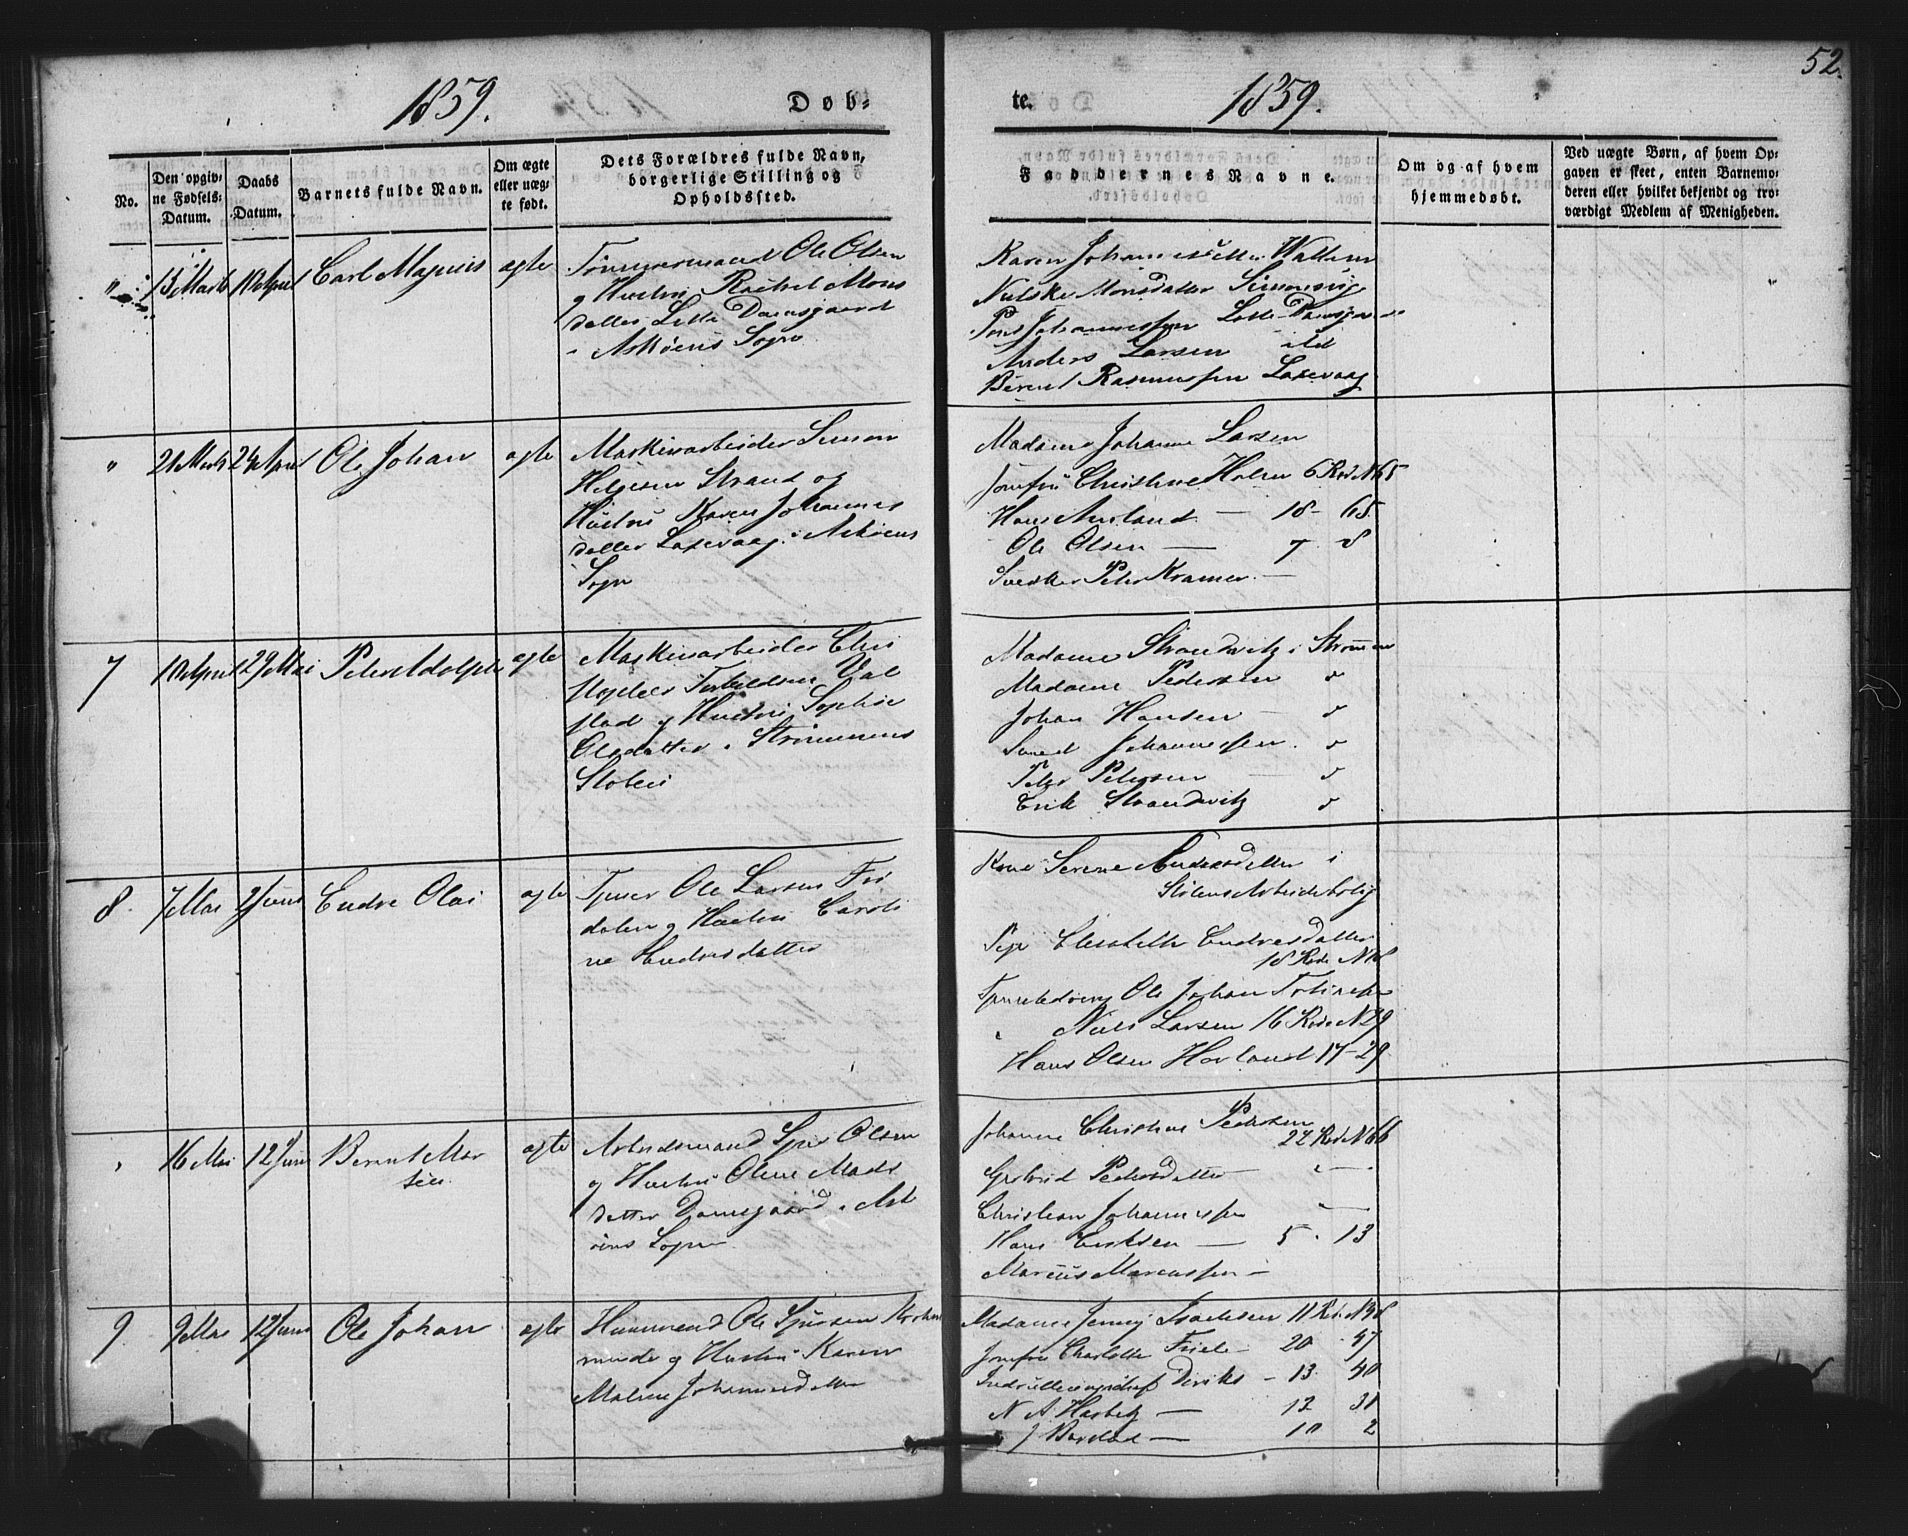 52.
1859.
Døb-
te.
1859.
No.
Den opgiv-
ne Fødsels-
Datum.
Daabs
Datum.
Barnets fulde Navn.
Om ægte
eller uæg-
te født.
Dets Forældres fulde Navn,
borgerlige Stilling og
Opholdssted.
Faddernes Navne.
Om og af hvem
hjemmedøbt.
Ved uægte Børn, af hvem Op-
gaven er skeet, enten Barnemo-
deren eller hvilket bekjendt og tro-
værdigt Medlem af Menigheden.
" 15 Marts 10 April Carl Magnus ægte
Tømmermand Ole Olsen
og Hustru Rachel Mons
datter Lille Damsgaard
i Askøens Sogn
Karen Johannesdatter Wallem
Nilske Monsdatter Simonsvig
Johannessen Lille Damsgaard
Anders Larsen ibd
Berent Rasmussen Laxevaag
" 21 Marts 24 April Ole Johan ægte
Maskinarbeider Simon
Helgesen Strand og
Hustru Karen Johannes
datter Laxevaag i Askøens
Sogn
Madame Johanne Larsen
Jomfru Christine Holm 6 Rode N 65
Hans Aurland — 18 - 65
Ole Olsen — 7 8
Peter Kramer —
7 10 April 29 Mai Peter Adolph ægte
Maskinarbeider Chri
stopher Torkildsen Val
stad og Hustru Sophie
Olsdatter i Strømmens
Madame Strandwitz i Strømmen
Madame Pedersen do
Johan Hansen — do
Svend Johannessen do
Peter Petersen — do
Erik Strandwitz do
8. 7 Mai 2 Juni Endre Olai ægte
Tjener Ole Larsen
og Hustru Caroli
ne Endresdatter
Kone Serene Andersdatter i
Stølens Arbeiderbolig
Pige Endresdatter
18 Rode N 18
Ole Johan
" Niels Larsen 16 Rode N 29
Hans Olsen Hovland 17 - 29
" 16 Mai 12 Juni Bernt Mar
tin ægte
Arbeidsmand Sjur Olsen
og Hustru Oline Mads
datter Damsgaard i Ask
øens Sogn
Johanne Christine Pedersen
22 Rode N 66
Gjertrud Pedersdatter — " —
Christian Johannessen " —
Hans Eriksen — 5 - 13
Marcus Marcussen —
9. 9 Mai 12 Juni Ole Johan ægte
Huusmand Ole Sjursen
og Hustru Karen
Malene Johannesdatter
Madame Jenny Isachsen 11 Rode N 98
Jomfru Charlotte Friele 20 47
Indrulleringschef Diriks — 13 40
N A Harbitz — 12 31
J — 10 2